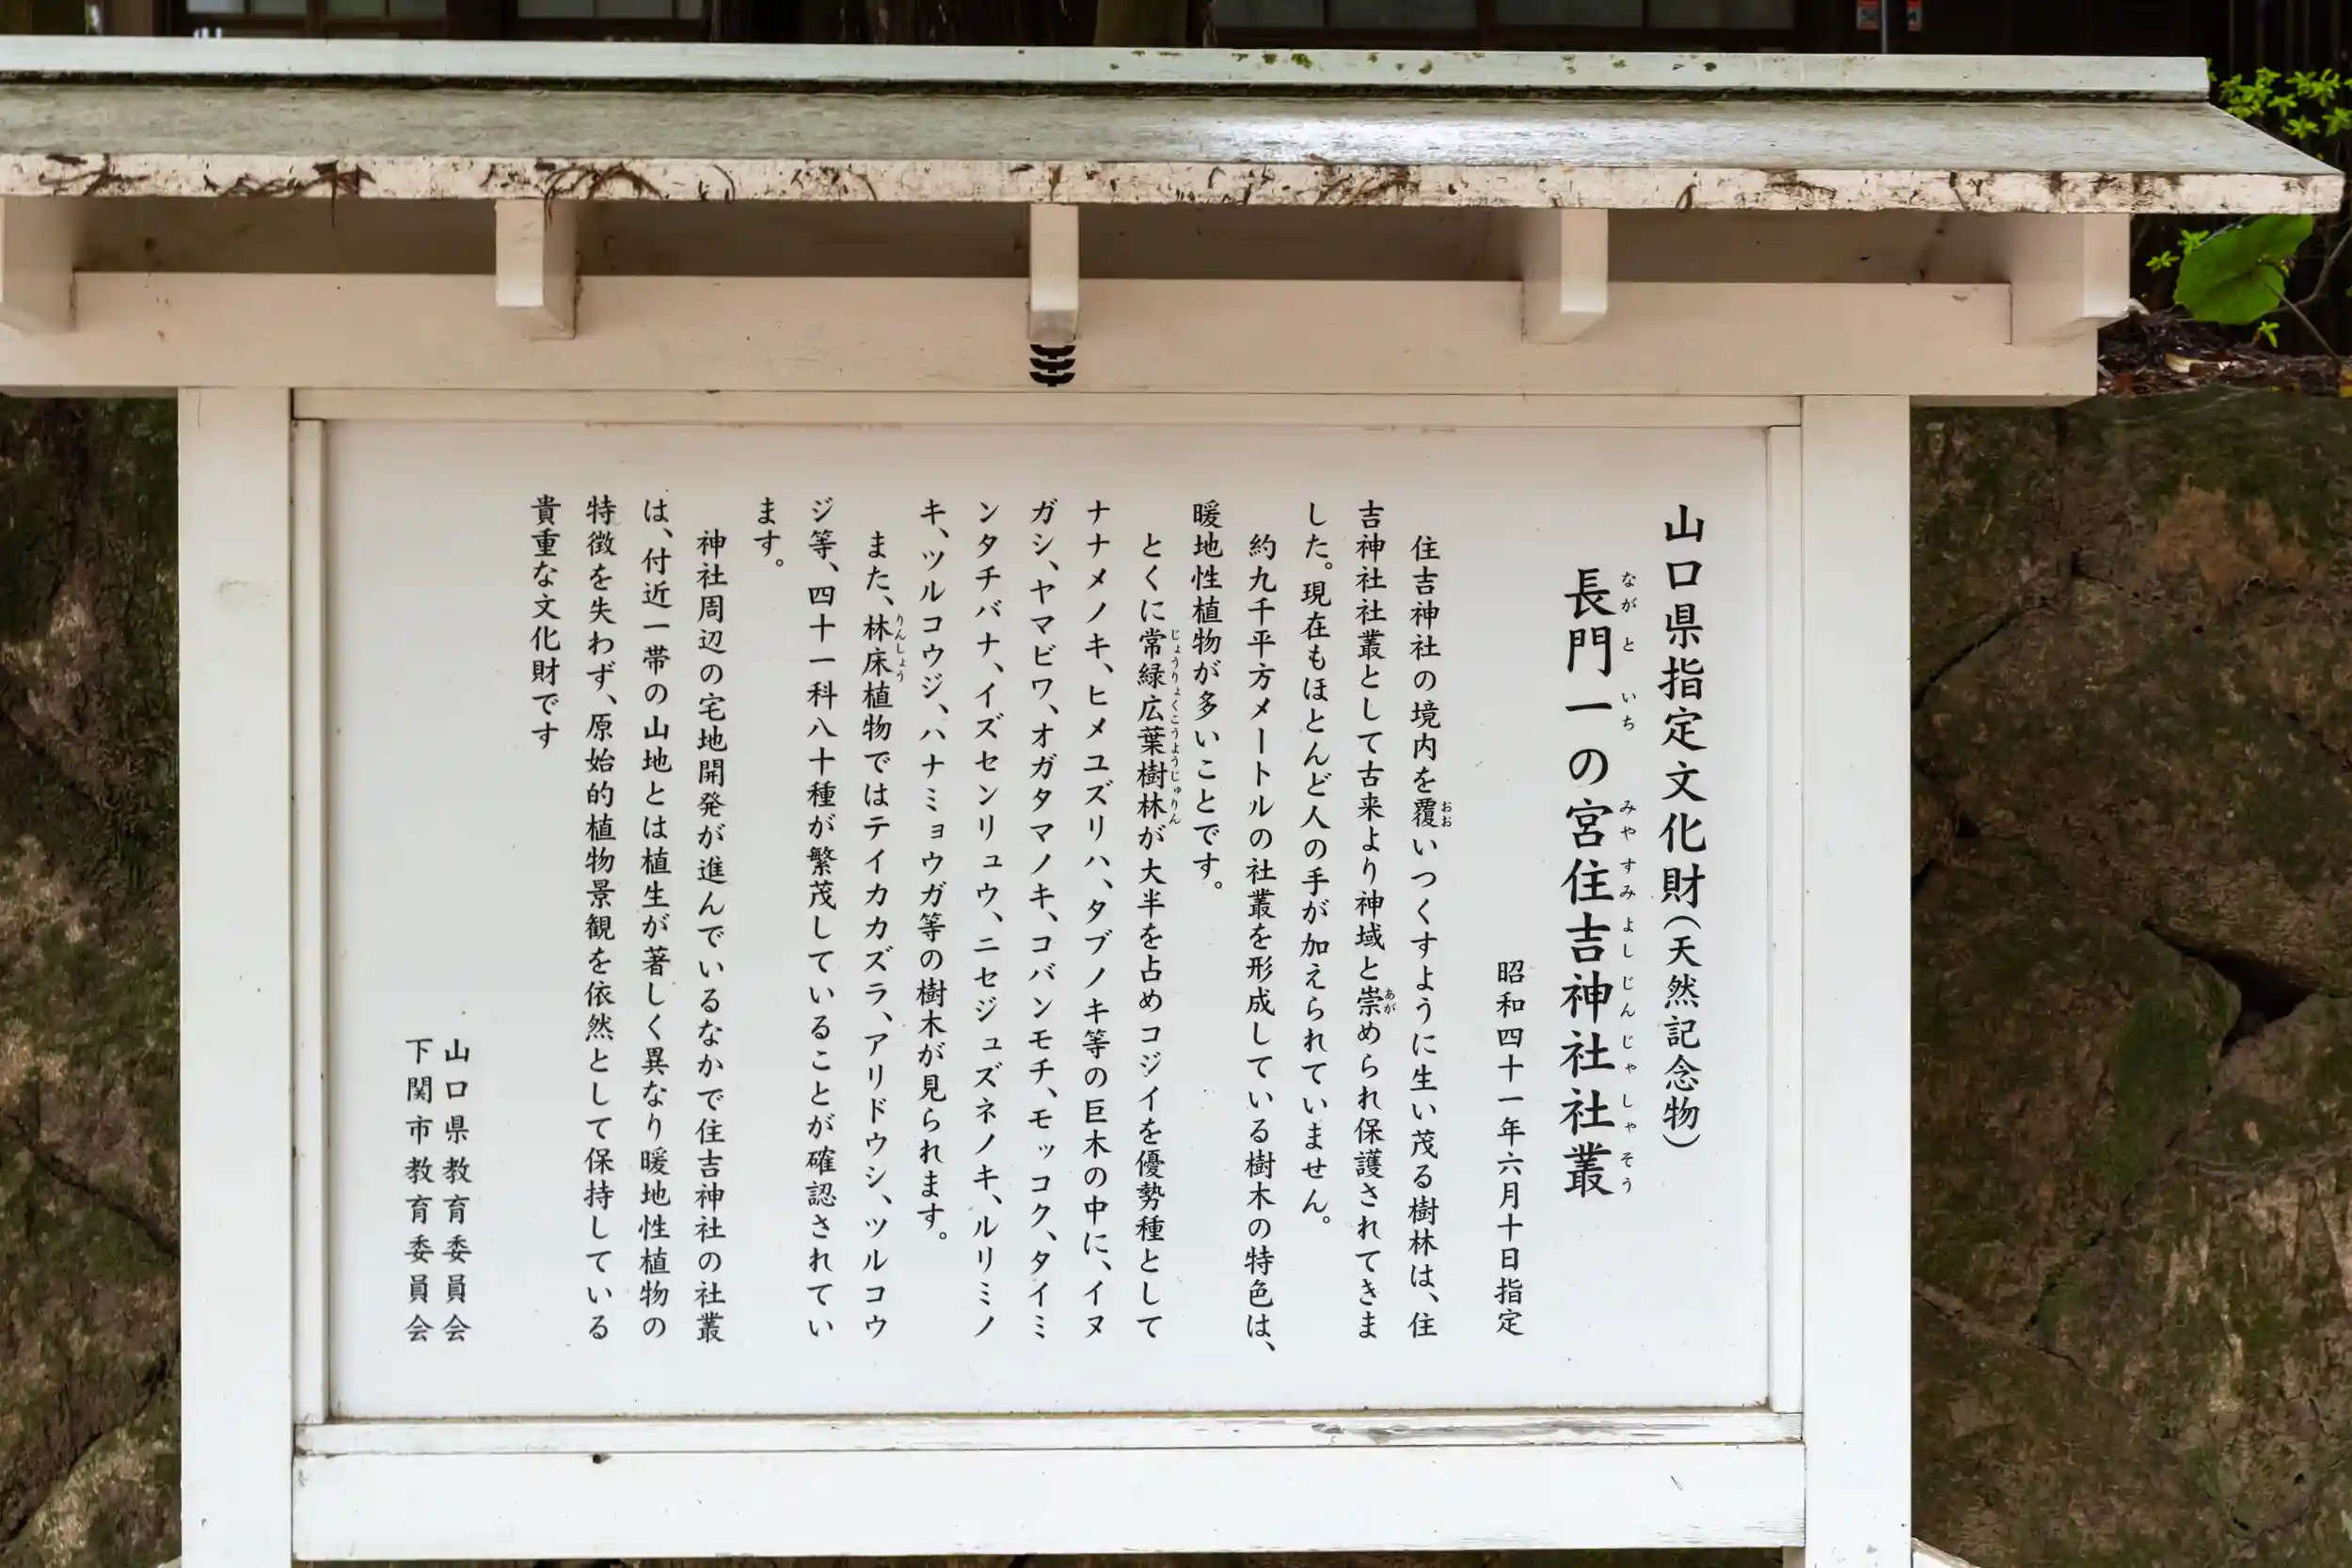 山口県指定文化財(天然記念物)
長門一の宮住吉神社社叢
ながといちみやすみよしじんじゃしゃそう
昭和四十一年六月十日指定
住吉神社の境内を覆いつくすように生い茂る樹林は、住
おお
吉神社社叢として古来より神域と崇められ保護されてきま
あが
した。現在もほとんど人の手が加えられていません。
約九千平方メートルの社叢を形成している樹木の特色は、
暖地性植物が多いことです。
とくに常緑広葉樹林が大半を占めコジイを優勢種として
じょうりょくこうようじゅりん
ナナメノキ、ヒメユズリハ、タブノキ等の巨木の中に、イヌ
ガシ、ヤマビワ、オガタマノキ、コバンモチ、モッコク、タイミ
ンタチバナ、イズセンリュウ、ニセジュズネノキ、ルリミノ
キ、ツルコウジ、ハナミョウガ等の樹木が見られます。
また、林床植物ではテイカカズラ、アリドウシ、ツルコウ
りんしょう
ジ等、四十一科八十種が繁茂していることが確認されてい
ます。
神社周辺の宅地開発が進んでいるなかで住吉神社の社叢
は、付近一帯の山地とは植生が著しく異なり暖地性植物の
特徴を失わず、原始的植物景観を依然として保持している
貴重な文化財です
山口県教育委員会
下関市教育委員会